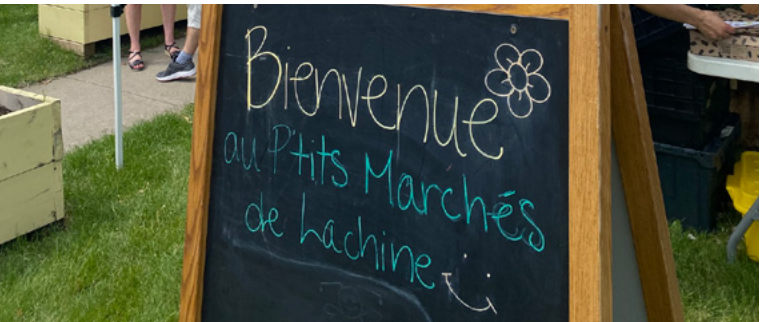 Bienvenue
au P'tits Marchés
de Lachine